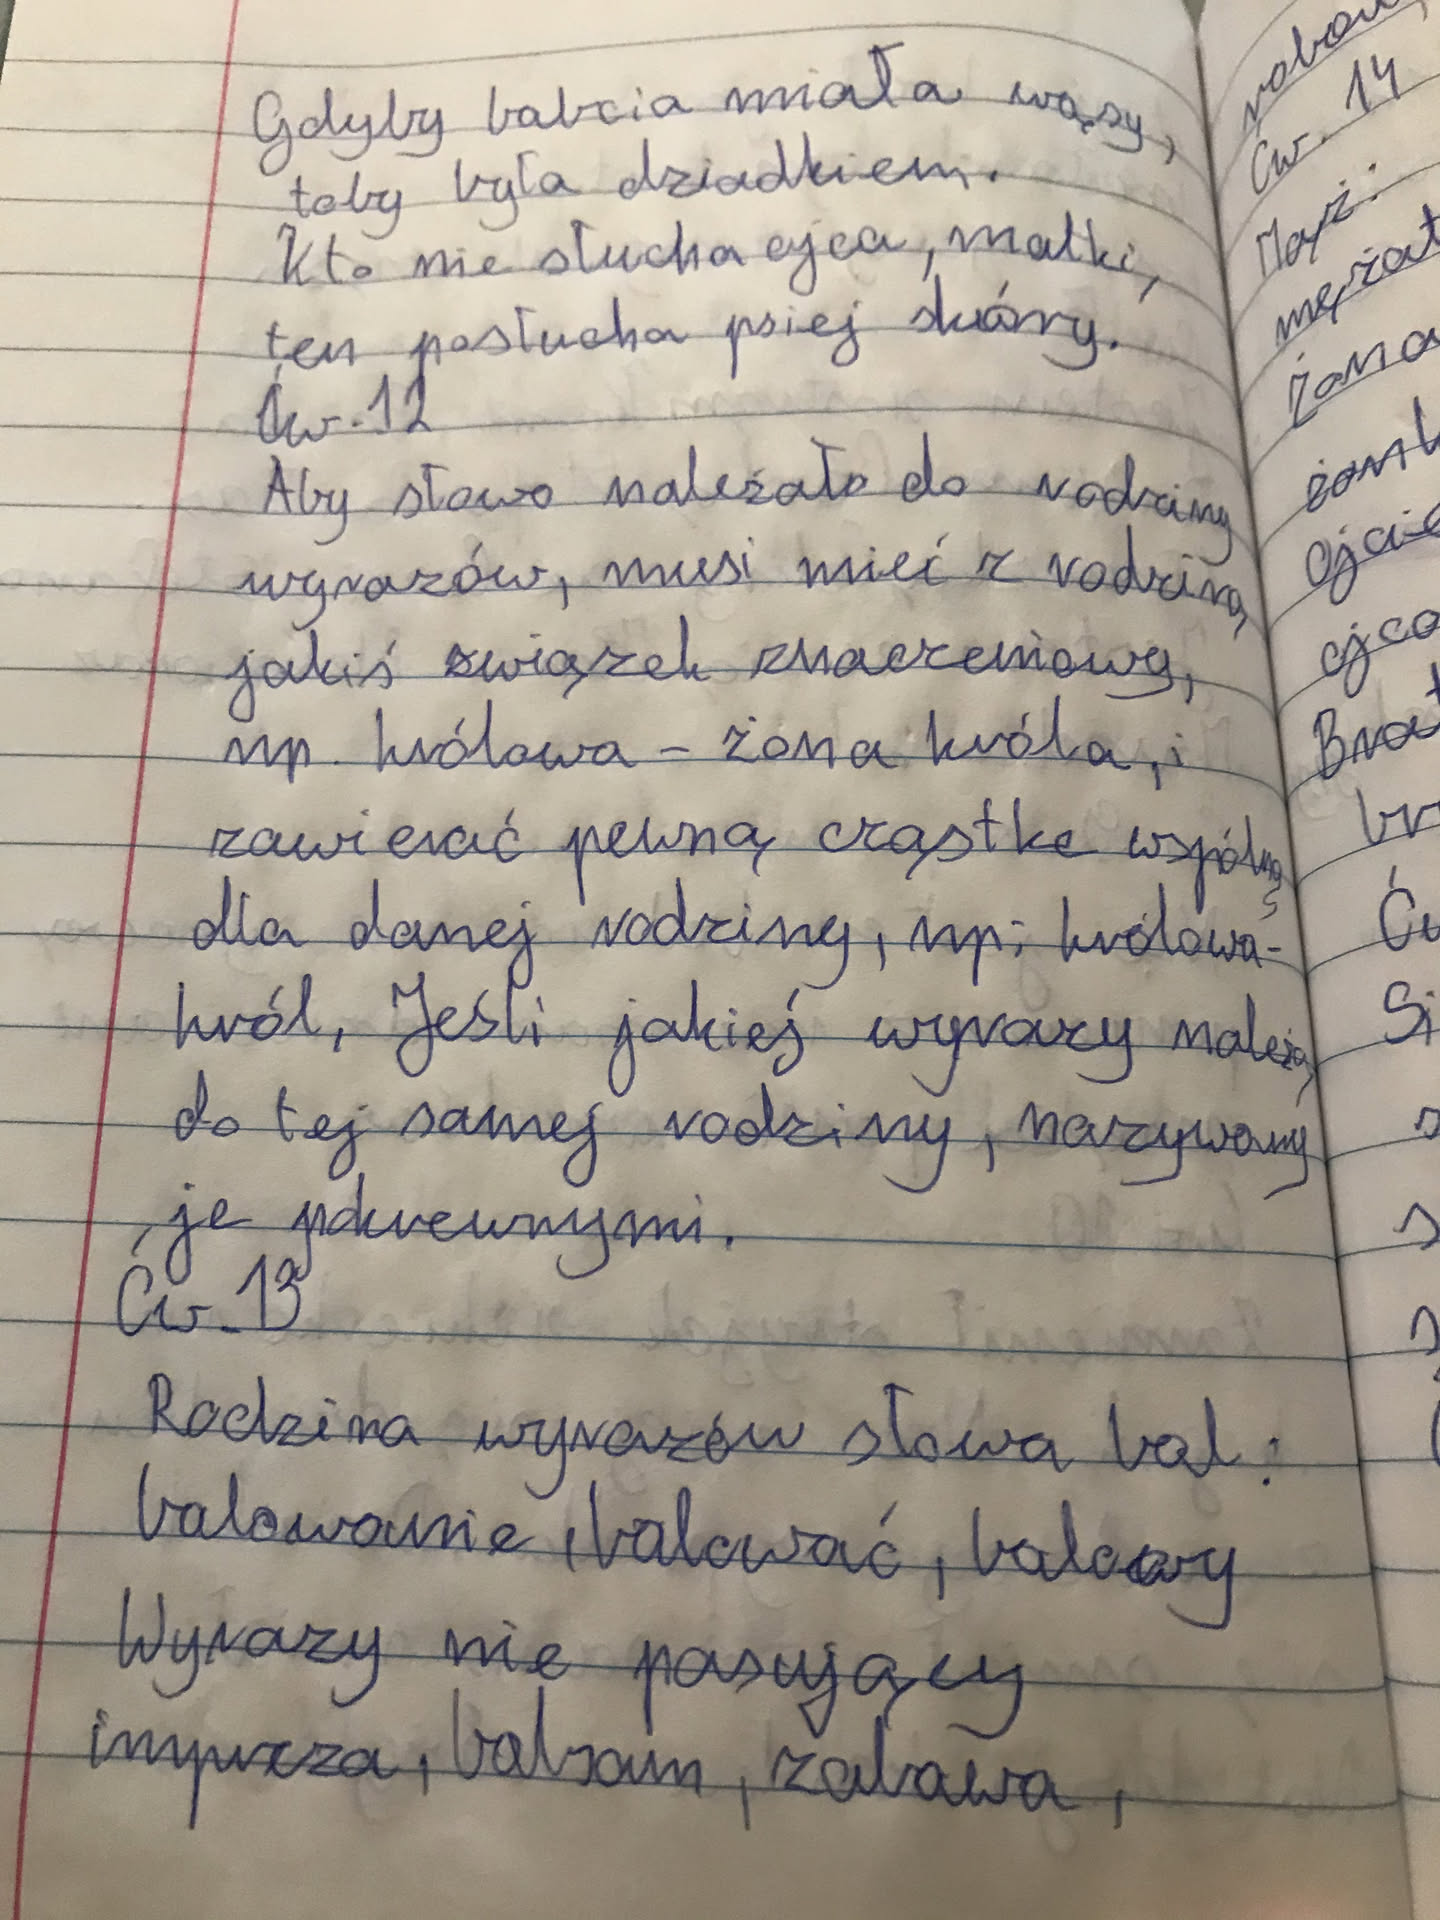 Gdyby babcia miała wąsy,
toby była dziadkiem.
Kto nie słucha ojca, matki,
ten posłucha psiej skóry.
Ćw. 12
Aby słowo należało do rodziny
wyrazów, musi mieć z rodziną
jakiś związek znaczeniowy,
np. królowa - żona króla, i
zawierać pewną cząstke wspólną
dla danej rodziny, np; królowa-
król, Jeśli jakieś wyrazy należą
do tej samej rodziny, nazywamy
je pokrewnymi.
Ćw. 13
Rodzina wyrazów słowa bal:
balowanie, balować, balowy
Wyrazy nie pasujący
impreza, balsam, zabawa,
Ćw. 14
Mąż:
Żona